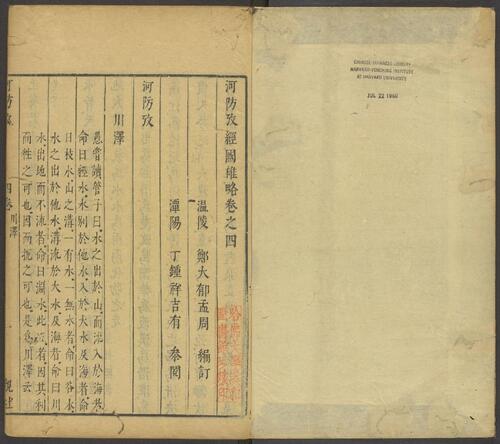 CHINESE-JAPANESE LIBRARY
HARVARD-YENCHING INSTITUTE
AT HARVARD UNIVERSITY
JUL 22 1960
河防攷經國雄略卷之四
溫陵 鄭大郁孟周 編訂
潭陽 丁鍾祥吉有 叅閱
河防攷
川澤
愚嘗讀管子曰水之出於山而流入於海者
命曰經水水别於他水入於大水及海者命
曰枝水山之溝一有水一無水者命曰谷水
水之出於他水溝流於大水及海者命曰川
水出地而不流者命曰淵水此五者因其利
而徃之可也因而扼之可也是爲川澤云
河防攷
四卷川澤
觀社